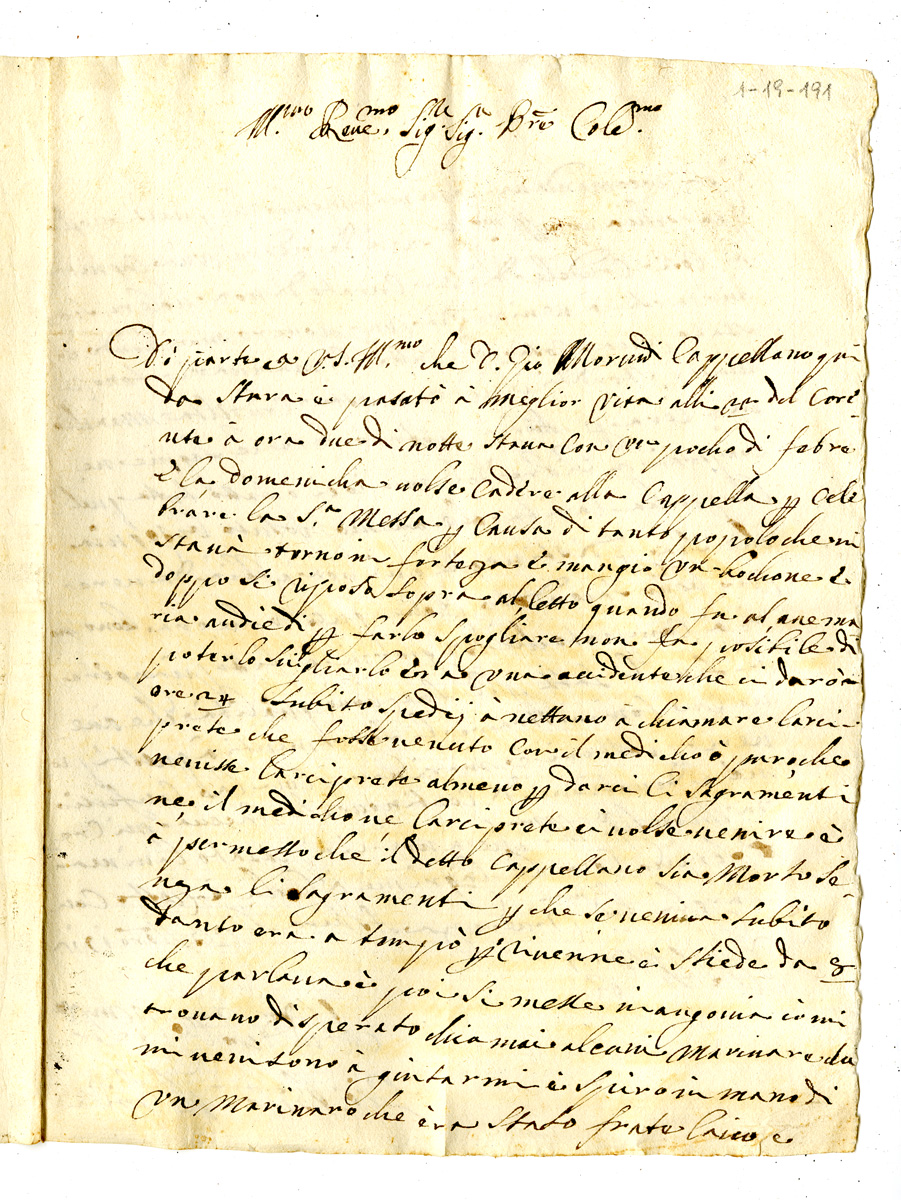 1-19-191
Ill.mo Reue.mo Sig.r Sig.r Prē Cole.mo
Dò parte a V.S. Ill.mo che D. Gio Morundi Cappellano qui
da Stura è pasato à meglior vita alli del Core
nte à ora due di notte staua con vn pocho di febre
e la domenicha uolse cadere alla Cappella p Cele
brare la S.a Messa p Causa di tanto popolo che ui
staua torno in fortezza e mangiò vn bochone e
doppo si riposa sopra al letto quando fu al anema
ria andiedi p farlo spogliare non fu posibile di
poterlo suigliarlo era vna accidente che ci darò à
ore 24 subito spedij à nettuno à chiamare larci
prete che fosse uenuto con il medicho ò pur che
uenisse larciprete almeno p darci li sagramenti
ne il medicho ne larciprete ci uolse uenire è
à permesso che il detto Cappellano sia Morto se
nza li sagramenti p che se ueniua subito
tanto era a tempò p riuenne è stiede da 8
che parlaua è poi si messe in angonia io mi
trouauo disperato chiamai alcuni marinare che
mi uenisono à giutarmi è spirò in mano di
vn Marinaro che era stato frate laico e